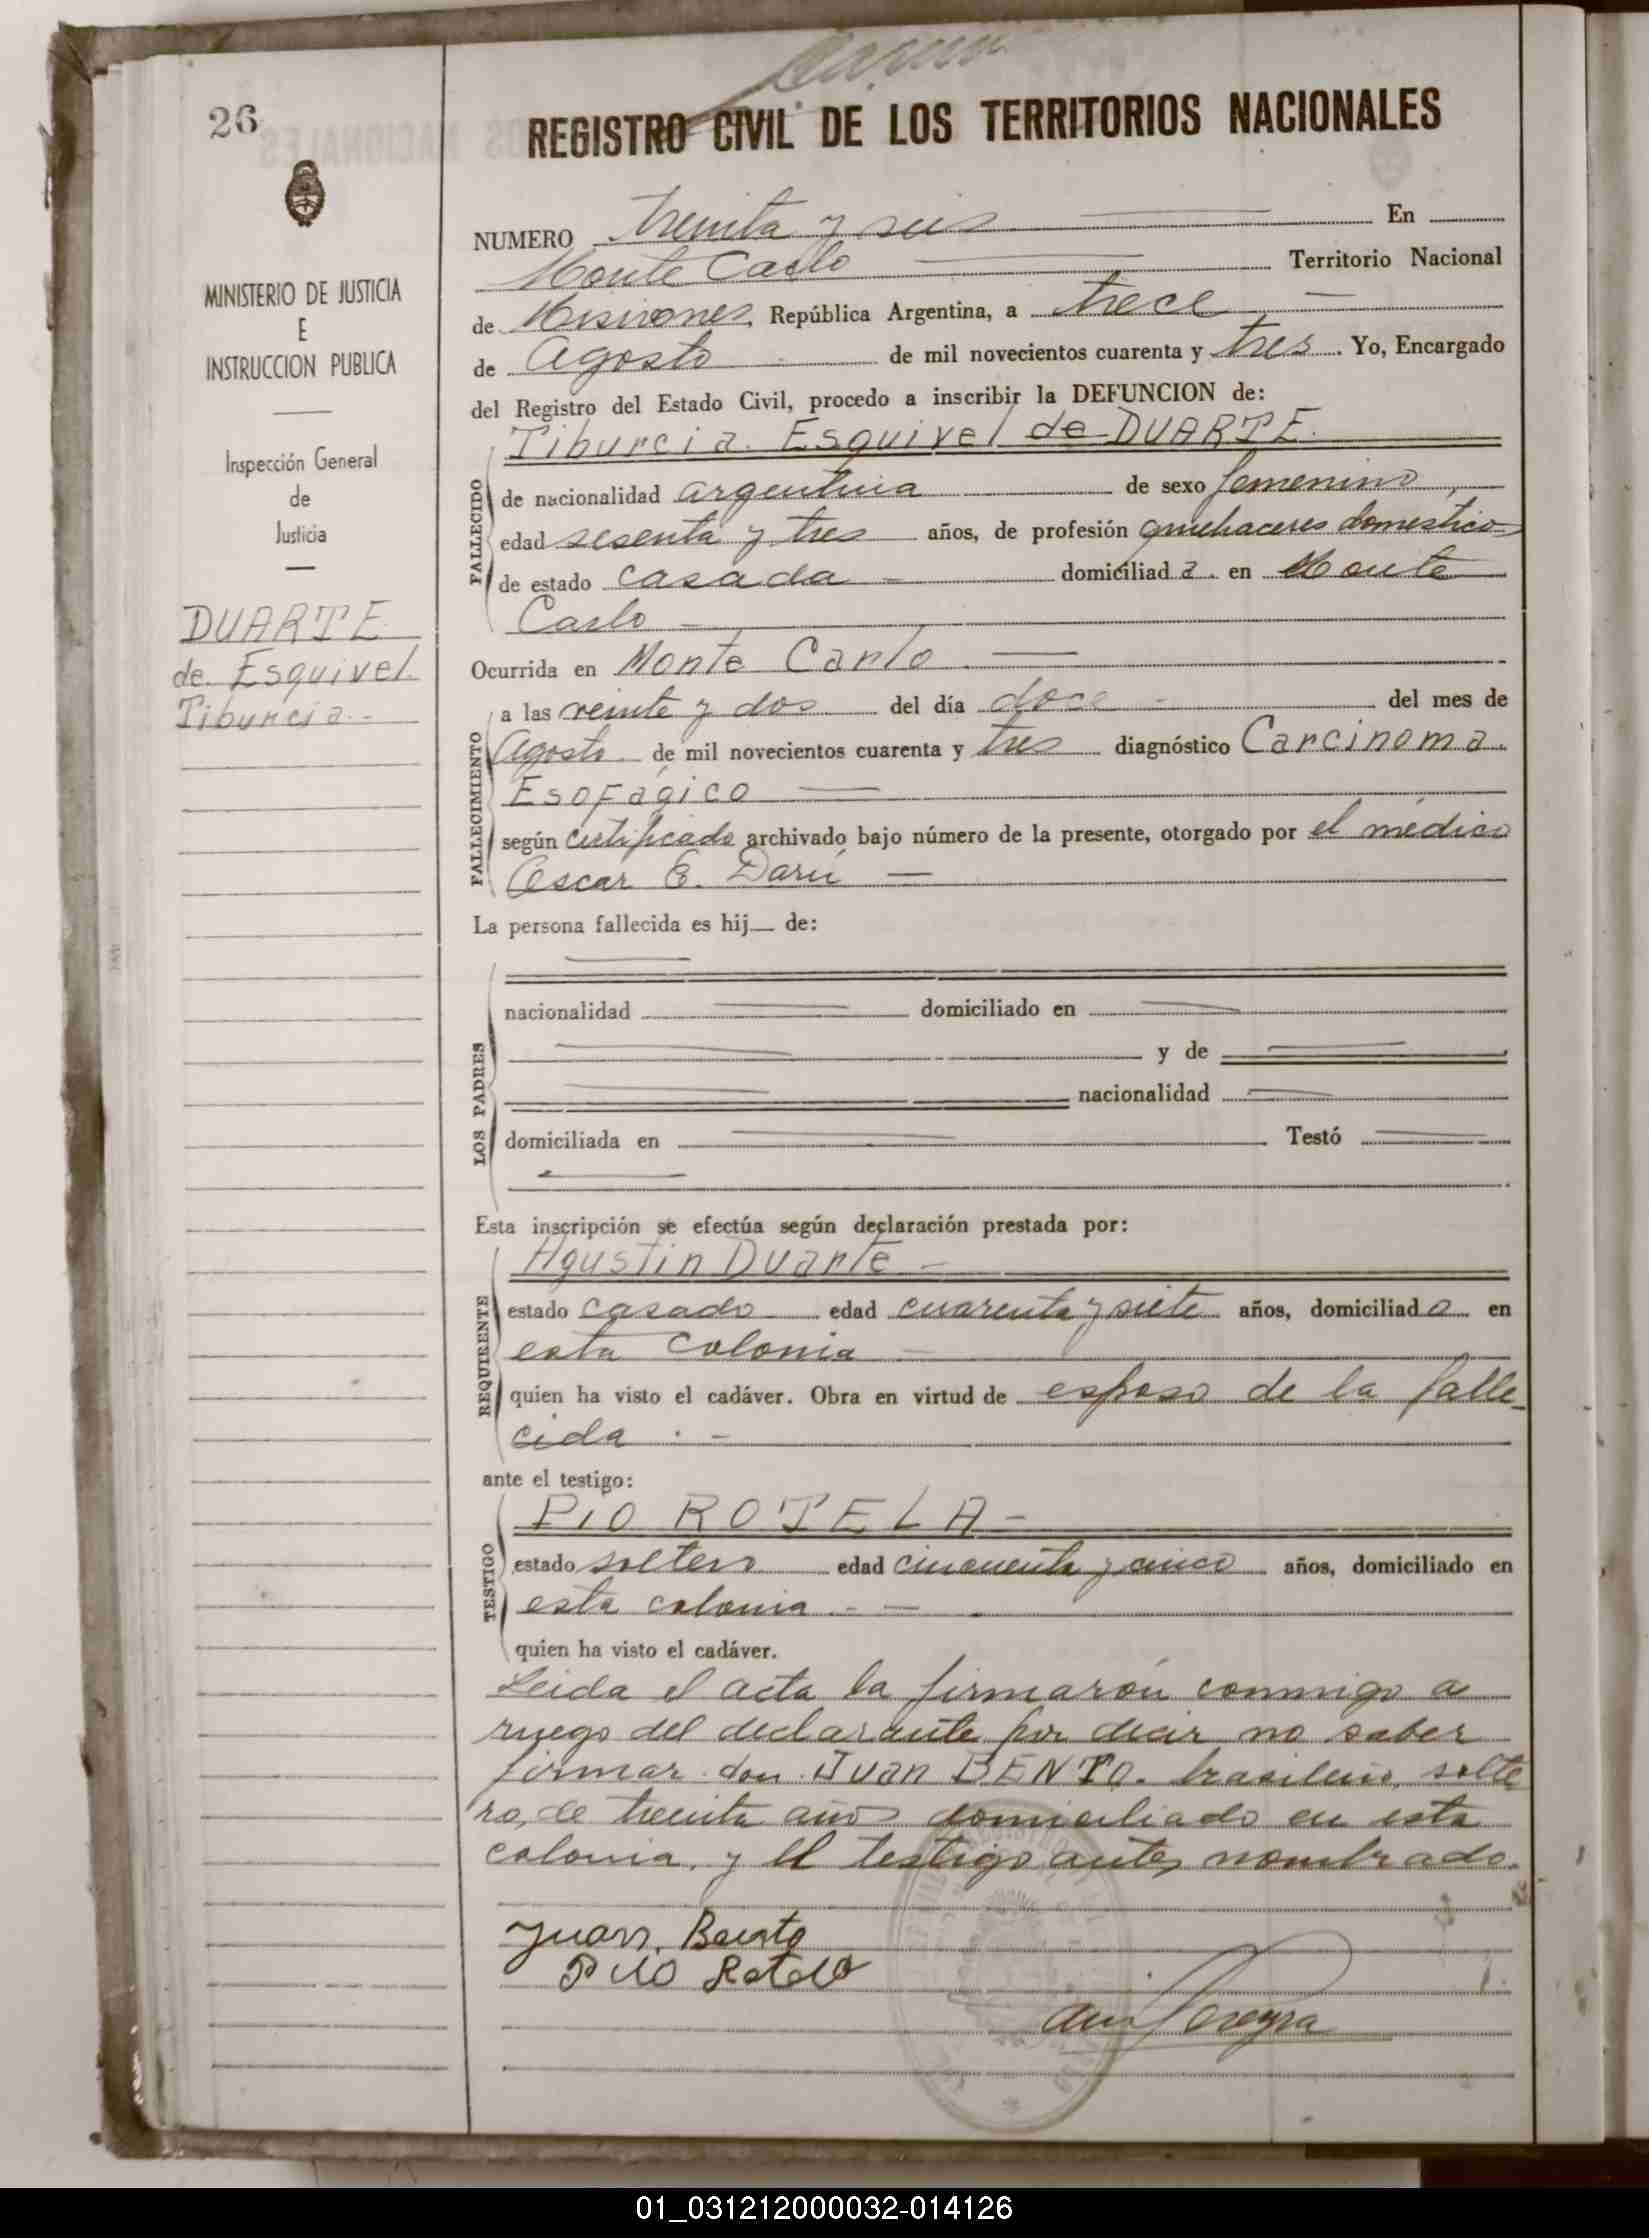 26
REGISTRO CIVIL DE LOS TERRITORIOS NACIONALES
MINISTERIO DE JUSTICIA
E
INSTRUCCION PUBLICA
Inspección General
de
Justicia
DUARTE
de Esquivel.
Tiburcia.-
NUMERO treinta y seis En
Monte Carlo Territorio Nacional
de Misiones República Argentina, a trece
de Agosto de mil novecientos cuarenta y tres. Yo, Encargado
del Registro del Estado Civil, procedo a inscribir la DEFUNCION de:
Tiburcia Esquivel de DUARTE.
FALLECIDO
de nacionalidad argentina de sexo femenino,
edad sesenta y tres años, de profesión quehaceres domestico
de estado casada domiciliada en Monte
Carlo
Ocurrida en Monte Carlo.
FALLECIMIENTO
a las veinte y dos del día doce del mes de
Agosto de mil novecientos cuarenta y tres diagnóstico Carcinoma.
Esofágico
según certificado archivado bajo número de la presente, otorgado por el médico
Oscar E. Darú
La persona fallecida es hij de:
LOS PADRES
nacionalidad domiciliado en
y de
nacionalidad
domiciliada en Testó
Esta inscripción se efectúa según declaración prestada por:
Agustin Duarte
REQUIRENTE
estado casado edad cuarenta y siete años, domiciliado en
esta colonia
quien ha visto el cadáver. Obra en virtud de esposo de la falle_
cida.-
ante el testigo:
PIO ROTELA-
TESTIGO
estado soltero edad cincuenta y cinco años, domiciliado en
esta colonia.-
quien ha visto el cadáver.
Leida el acta la firmarón conmigo a
ruego del declarante por decir no saber
firmar don Juan BENTO. brasileño, solte
ro, de treinta años domiciliado en esta
colonia, y el testigo antes nombrado.
Juan Bento
Pio Rotela
Pereyra
01_031212000032-014126